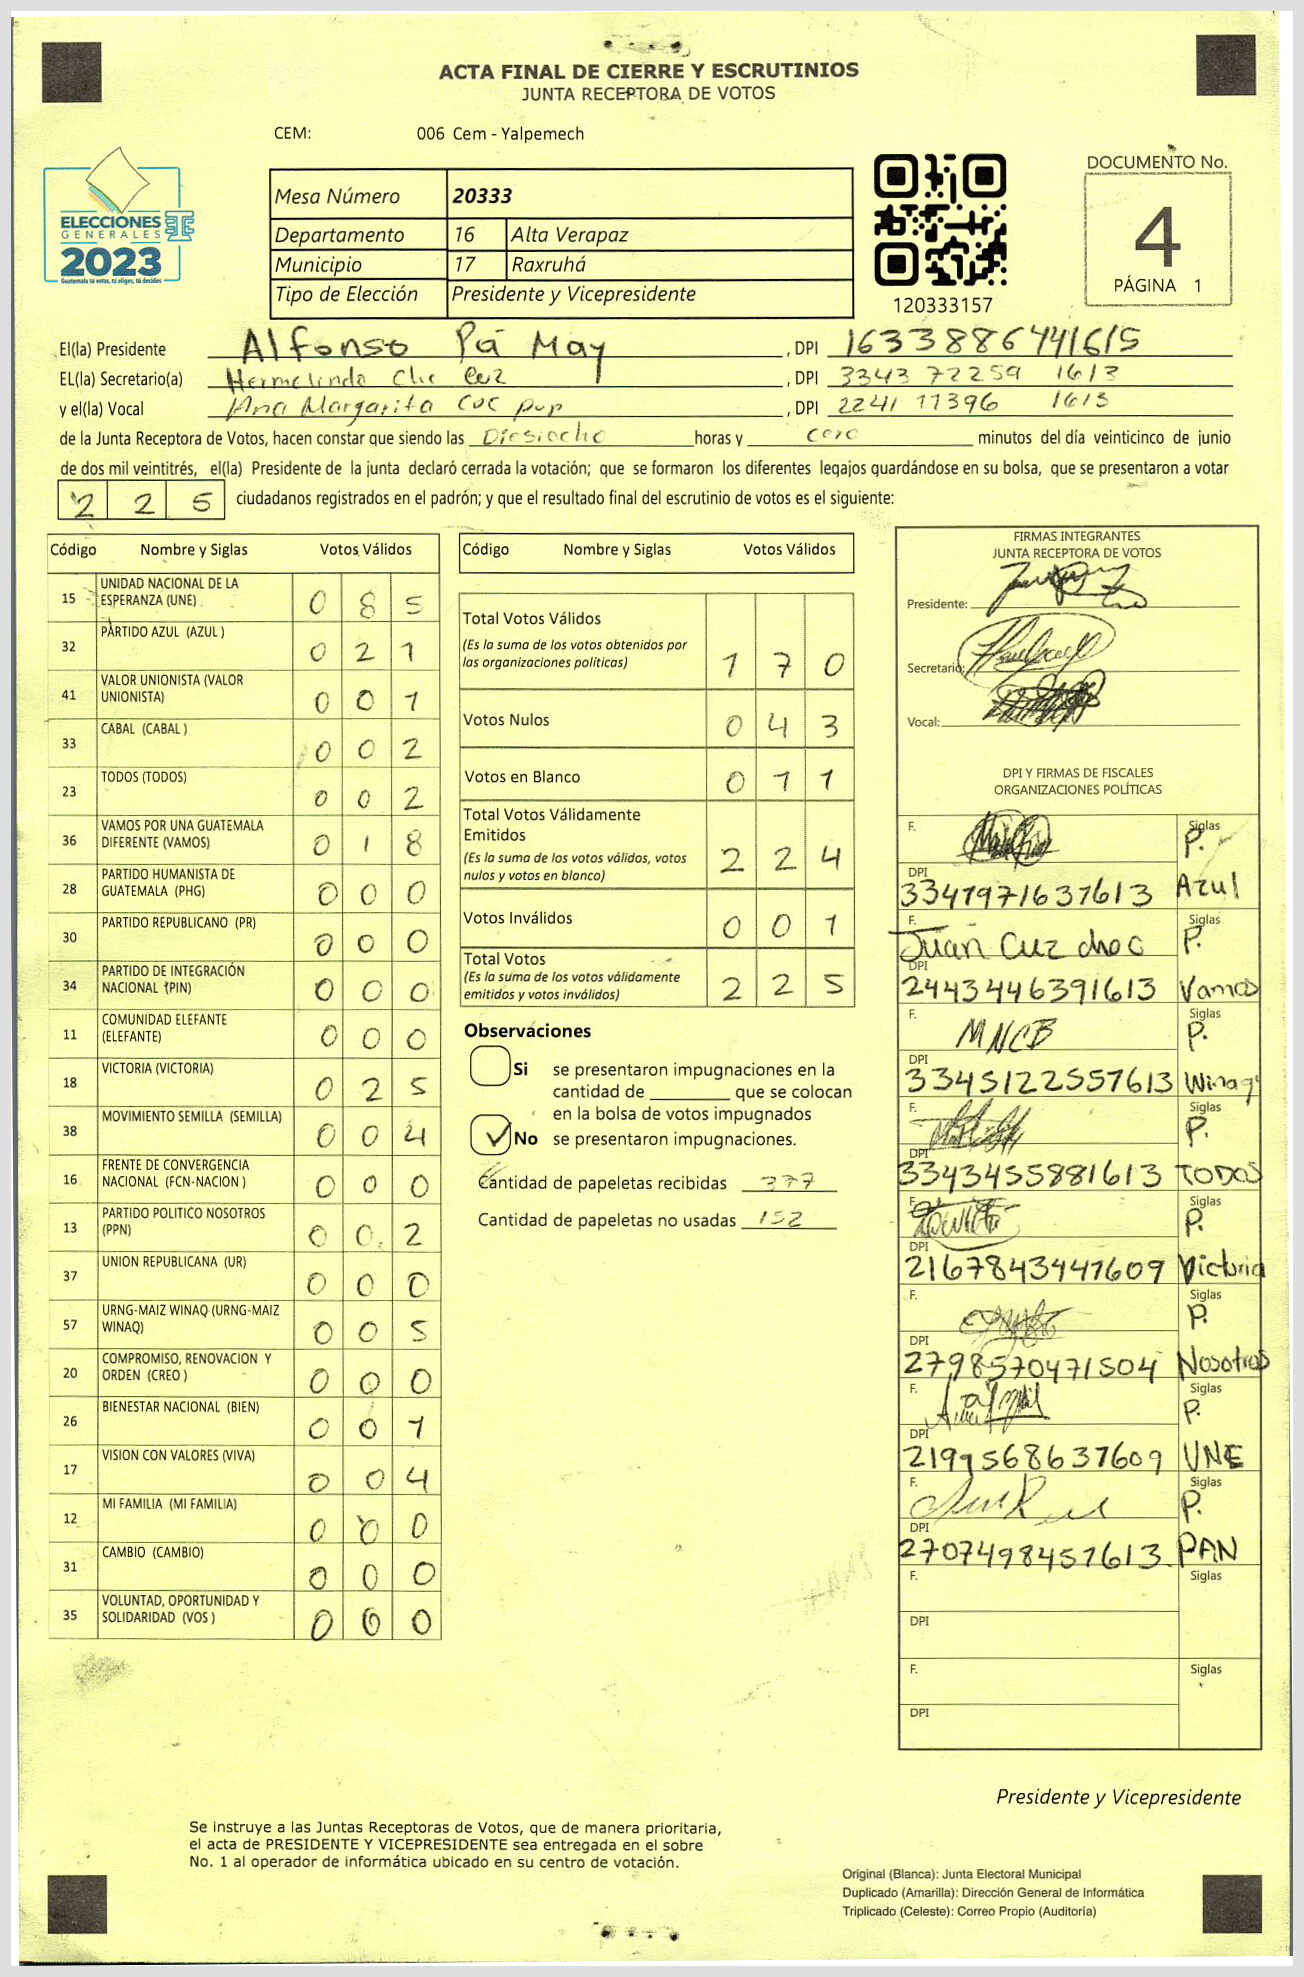 ACTA FINAL DE CIERRE Y ESCRUTINIOS
JUNTA RECEPTORA DE VOTOS
CEM: 006 Cem - Yalpemech
ELECCIONES
GENERALES
2023
Guatemala tú votas, tú eliges, tú decides
Mesa Número 20333
Departamento 16 Alta Verapaz
Municipio 17 Raxruhá
Tipo de Elección Presidente y Vicepresidente
120333157
DOCUMENTO No.
4
PÁGINA 1
El(la) Presidente Alfonso Pá May , DPI 1633886441615
EL(la) Secretario(a) Hermelindo Che Cuz , DPI 3343 72259 1613
y el(la) Vocal Ana Margarita Cuc pop , DPI 2241 11396 1613
de la Junta Receptora de Votos, hacen constar que siendo las Diesiocho horas y cero minutos del día veinticinco de junio
de dos mil veintitrés, el(la) Presidente de la junta declaró cerrada la votación; que se formaron los diferentes legajos guardándose en su bolsa, que se presentaron a votar
2 2 5 ciudadanos registrados en el padrón; y que el resultado final del escrutinio de votos es el siguiente:
Código Nombre y Siglas Votos Válidos
15 UNIDAD NACIONAL DE LA ESPERANZA (UNE) 0 8 5
32 PARTIDO AZUL (AZUL ) 0 2 1
41 VALOR UNIONISTA (VALOR UNIONISTA) 0 0 1
33 CABAL (CABAL ) 0 0 2
23 TODOS (TODOS) 0 0 2
36 VAMOS POR UNA GUATEMALA DIFERENTE (VAMOS) 0 1 8
28 PARTIDO HUMANISTA DE GUATEMALA (PHG) 0 0 0
30 PARTIDO REPUBLICANO (PR) 0 0 0
34 PARTIDO DE INTEGRACIÓN NACIONAL (PIN) 0 0 0
11 COMUNIDAD ELEFANTE (ELEFANTE) 0 0 0
18 VICTORIA (VICTORIA) 0 2 5
38 MOVIMIENTO SEMILLA (SEMILLA) 0 0 4
16 FRENTE DE CONVERGENCIA NACIONAL (FCN-NACION ) 0 0 0
13 PARTIDO POLITICO NOSOTROS (PPN) 0 0 2
37 UNION REPUBLICANA (UR) 0 0 0
57 URNG-MAIZ WINAQ (URNG-MAIZ WINAQ) 0 0 5
20 COMPROMISO, RENOVACION Y ORDEN (CREO ) 0 0 0
26 BIENESTAR NACIONAL (BIEN) 0 0 1
17 VISION CON VALORES (VIVA) 0 0 4
12 MI FAMILIA (MI FAMILIA) 0 0 0
31 CAMBIO (CAMBIO) 0 0 0
35 VOLUNTAD, OPORTUNIDAD Y SOLIDARIDAD (VOS ) 0 0 0
Código Nombre y Siglas Votos Válidos
Total Votos Válidos
(Es la suma de los votos obtenidos por
las organizaciones políticas) 1 7 0
Votos Nulos 0 4 3
Votos en Blanco 0 1 1
Total Votos Válidamente
Emitidos
(Es la suma de los votos válidos, votos
nulos y votos en blanco) 2 2 4
Votos Inválidos 0 0 1
Total Votos
(Es la suma de los votos válidamente
emitidos y votos inválidos) 2 2 5
Observaciones
Si se presentaron impugnaciones en la
cantidad de ________ que se colocan
en la bolsa de votos impugnados
No se presentaron impugnaciones.
Cantidad de papeletas recibidas 377
Cantidad de papeletas no usadas 152
FIRMAS INTEGRANTES
JUNTA RECEPTORA DE VOTOS
Presidente:
Secretario:
Vocal:
DPI Y FIRMAS DE FISCALES
ORGANIZACIONES POLÍTICAS
F. Siglas P.
DPI 3341971637613 Azul
F. Juan Cuz choc Siglas P.
DPI 2443446391613 Vamos
F. MNCB Siglas P.
DPI 3345122557613 Winaq
F. Siglas P.
DPI 3343455881613 TODOS
F. Siglas P.
DPI 2167843441609 Victoria
F. Siglas P.
DPI 2798570471504 Nosotros
F. Siglas P.
DPI 2199568637609 UNE
F. Siglas P.
DPI 2707498457613 PAN
F. Siglas
DPI
F. Siglas
DPI
Presidente y Vicepresidente
Se instruye a las Juntas Receptoras de Votos, que de manera prioritaria,
el acta de PRESIDENTE Y VICEPRESIDENTE sea entregada en el sobre
No. 1 al operador de informática ubicado en su centro de votación.
Original (Blanca): Junta Electoral Municipal
Duplicado (Amarilla): Dirección General de Informática
Triplicado (Celeste): Correo Propio (Auditoría)